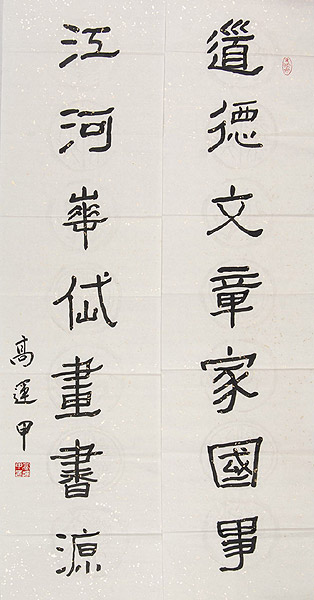 道德文章家國事
江河崋岱畫書源
高運甲